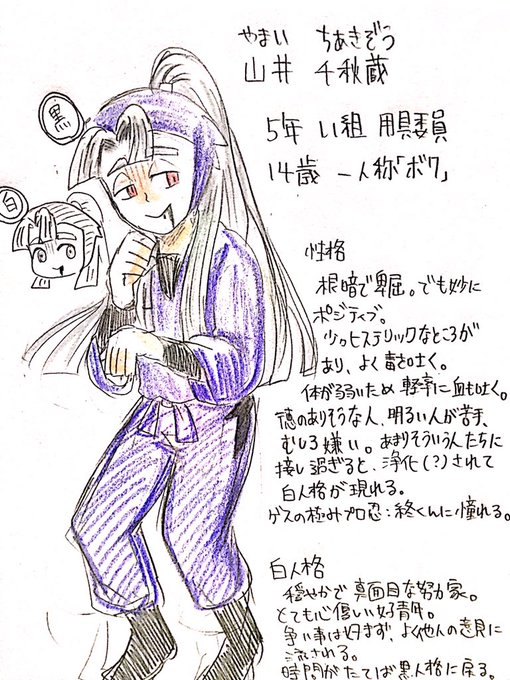 やまい ちあきぞう
山井 千秋蔵
黒
5年 い組 用具委員
14歳 一人称「ボク」
白
性格
根暗で卑屈。でも妙に
ポジティブ。
少々ヒステリックなところが
あり、よく毒を吐く。
体が弱いため軽率に血も吐く。
徳のありそうな人、明るい人が苦手、
むしろ嫌い。あまりそういう人たちに
接し過ぎると、浄化(?)されて
白人格が現れる。
ゲスの極みプロ忍:終くんに憧れる。
白人格
穏やかで真面目な努力家。
とても心優しい好青年。
争い事は好まず、よく他人の意見に
流される。
時間がたてば黒人格に戻る。